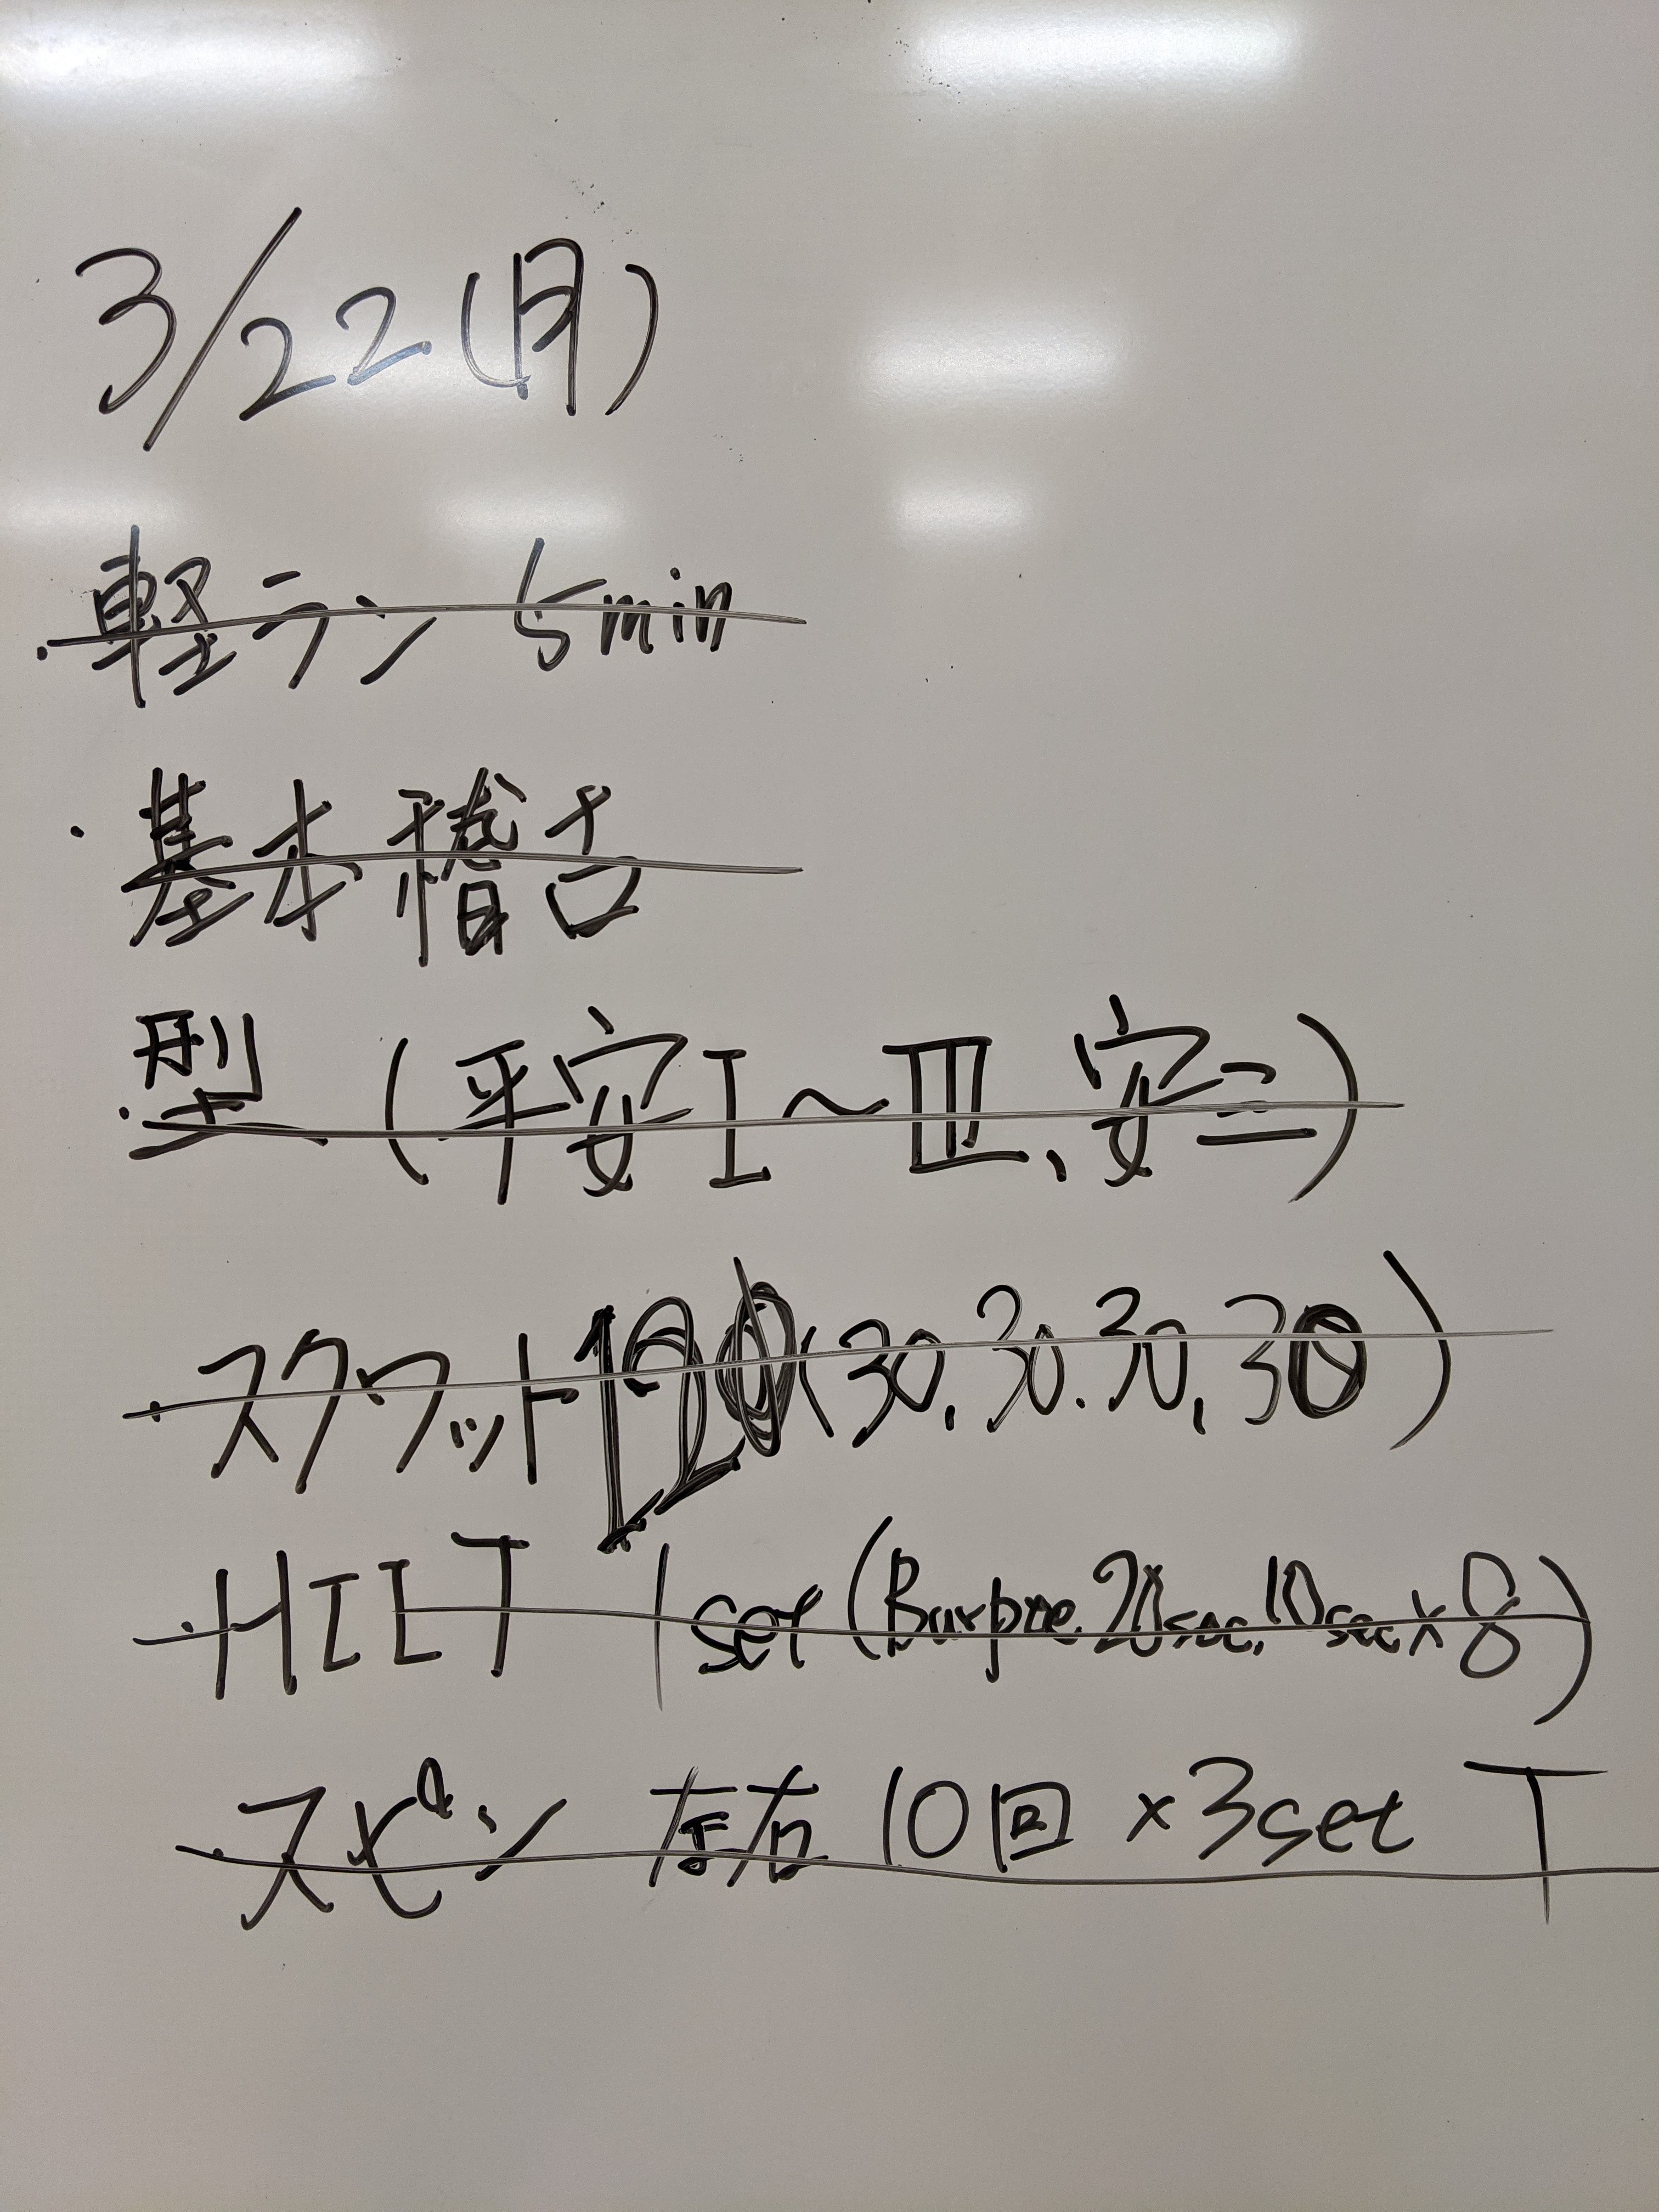 3/22(月)
・軽ラン 5min
・基本稽古
・型(平安I～III、安三)
・スクワット120(30.30.30.30)
・HIIT 1set(Burpee.20sec.10sec×8)
・スピン 左右10回×3set T